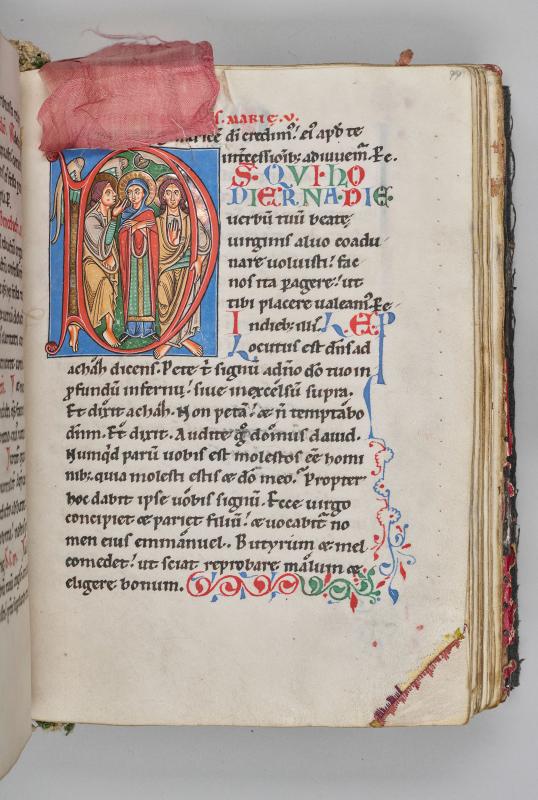 S. MARIE. V.
di credim'. ei apd te
intcessionib; adiuuem. Pe.
D S. QVI HO
DIERNA DIE
uerbu tuu beate
uirginis aluo coadu
nare uoluisti. fac
nos ita pagere. ut
tibi placere ualeam. Pe
In dieb; illis.
Locutus est dns ad
achab dicens. Pete t signu a dno do tuo in
pfundu inferni. siue in excelsu supra.
Et dixit achab. Non peta. & n temptabo
dnm. Et dixit. Audite g domus dauid.
Nunqd paru uobis est molestos ee homi
nib; quia molesti estis & do meo. Propter
hoc dabit ipse uobis signu. Ecce uirgo
concipiet & pariet filiu. & uocabit no
men eius emmanuel. Butyrum & mel
comedet. ut sciat reprobare malum &
eligere bonum.